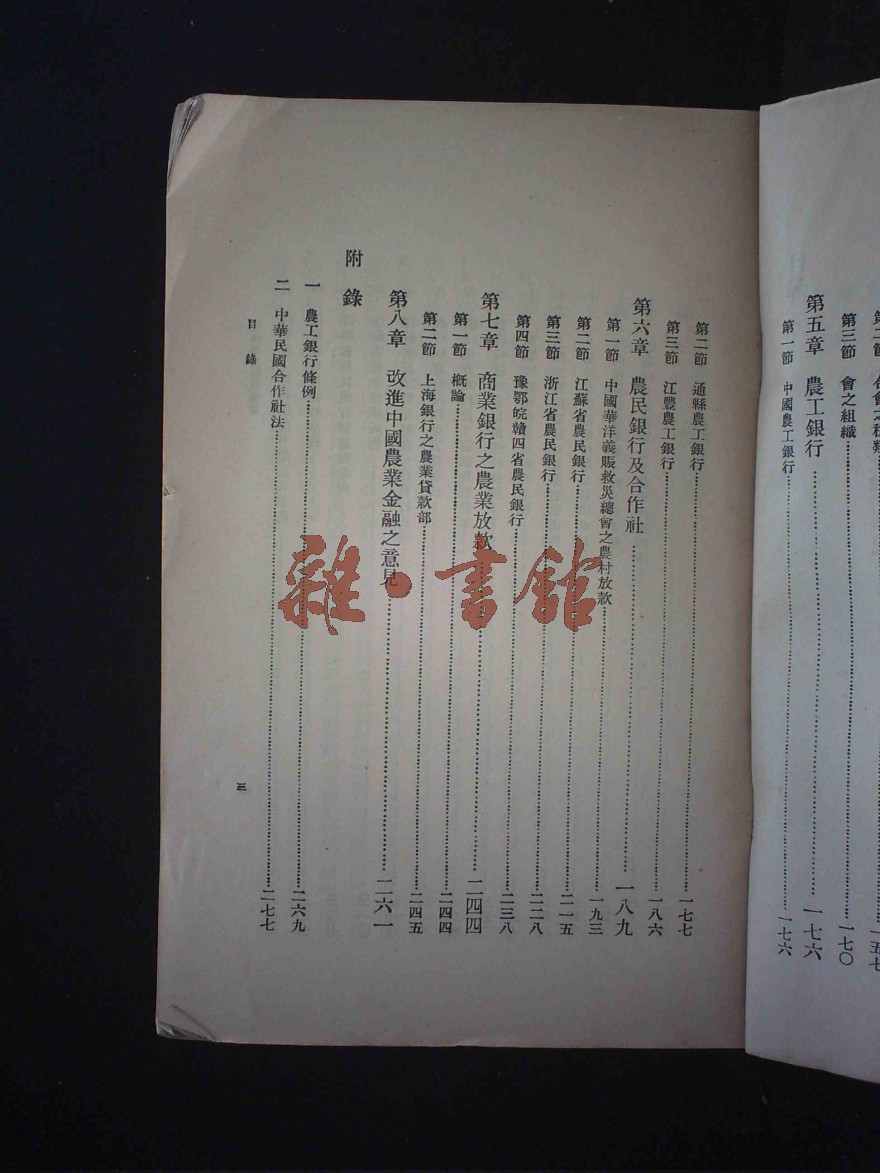 第三節　會之組織……一七〇
第五章　農工銀行……一七六
第一節　中國農工銀行……一七六
第二節　通縣農工銀行……一七七
第三節　江豐農工銀行……一八六
第六章　農民銀行及合作社……一八九
第一節　中國華洋義賑救災總會之農村放款……一九三
第二節　江蘇省農民銀行……二一五
第三節　浙江省農民銀行……二二八
第四節　豫鄂皖贛四省農民銀行……二三八
第七章　商業銀行之農業放款……二四四
第一節　概論……二四四
第二節　上海銀行之農業貸款部……二四五
第八章　改進中國農業金融之意見……二六一
附錄
一　農工銀行條例……二六九
二　中華民國合作社法……二七七
目錄
三
雜·書館